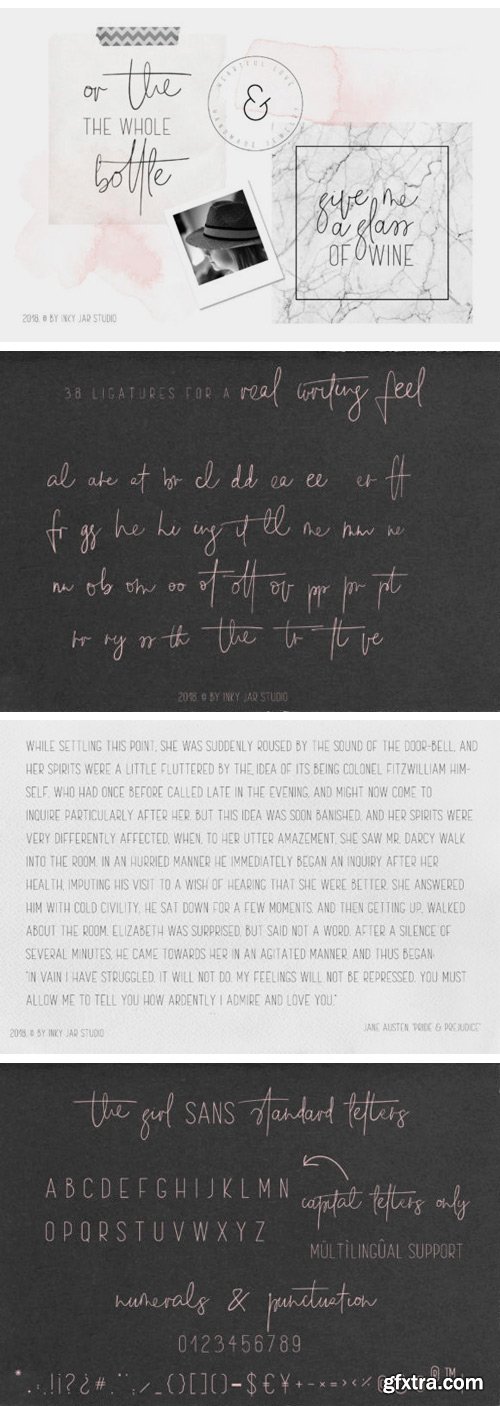 or the
THE WHOLE
bottle
BEAUTIFUL LOVE
HANDMADE JEWELRY
&
give me
a glass
OF WINE
2018. © BY INKY JAR STUDIO
38 LIGATURES FOR A real writing feel
al are at br cl dd ea ee er ft
fr gg he hi ing it ll me mm ne
nn ob om oo of off ov pp pr pt
rr ry ss th the tr tt ve
2018. © BY INKY JAR STUDIO
WHILE SETTLING THIS POINT, SHE WAS SUDDENLY ROUSED BY THE SOUND OF THE DOOR-BELL, AND
HER SPIRITS WERE A LITTLE FLUTTERED BY THE IDEA OF ITS BEING COLONEL FITZWILLIAM HIM-
SELF, WHO HAD ONCE BEFORE CALLED LATE IN THE EVENING, AND MIGHT NOW COME TO
INQUIRE PARTICULARLY AFTER HER. BUT THIS IDEA WAS SOON BANISHED, AND HER SPIRITS WERE
VERY DIFFERENTLY AFFECTED, WHEN, TO HER UTTER AMAZEMENT, SHE SAW MR. DARCY WALK
INTO THE ROOM. IN AN HURRIED MANNER HE IMMEDIATELY BEGAN AN INQUIRY AFTER HER
HEALTH, IMPUTING HIS VISIT TO A WISH OF HEARING THAT SHE WERE BETTER. SHE ANSWERED
HIM WITH COLD CIVILITY. HE SAT DOWN FOR A FEW MOMENTS, AND THEN GETTING UP, WALKED
ABOUT THE ROOM. ELIZABETH WAS SURPRISED, BUT SAID NOT A WORD. AFTER A SILENCE OF
SEVERAL MINUTES, HE CAME TOWARDS HER IN AN AGITATED MANNER, AND THUS BEGAN:
"IN VAIN I HAVE STRUGGLED. IT WILL NOT DO. MY FEELINGS WILL NOT BE REPRESSED. YOU MUST
ALLOW ME TO TELL YOU HOW ARDENTLY I ADMIRE AND LOVE YOU."
JANE AUSTEN "PRIDE & PREJUDICE"
2018. © BY INKY JAR STUDIO
the girl SANS standard letters
ABCDEFGHIJKLMN
OPQRSTUVWXYZ
capital letters only
MÛLTÌLINGÛAL SUPPORT
numerals & punctuation
0123456789
* . : ! ¡ ? ¿ # / _ ( ) [ ] { } - $ € ¥ + - × = > < % ® ™
gfxtra.com